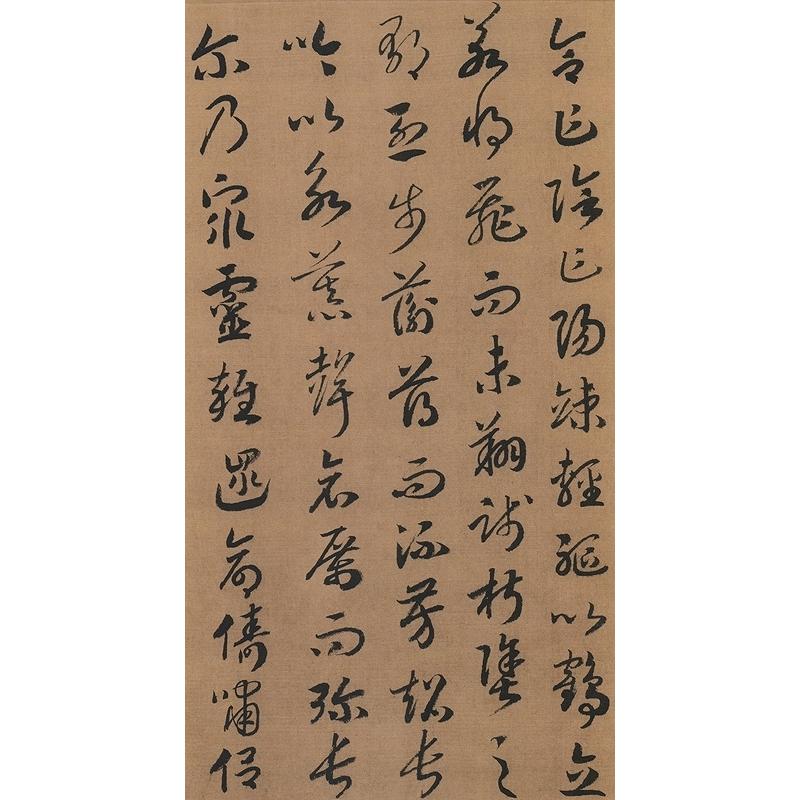 合乍陰乍陽竦輕軀以鶴立
若將飛而未翔踐椒塗之
郁烈步蘅薄而流芳超長
吟以永慕聲哀厲而彌長
爾乃眾靈雜遝命儔嘯侶